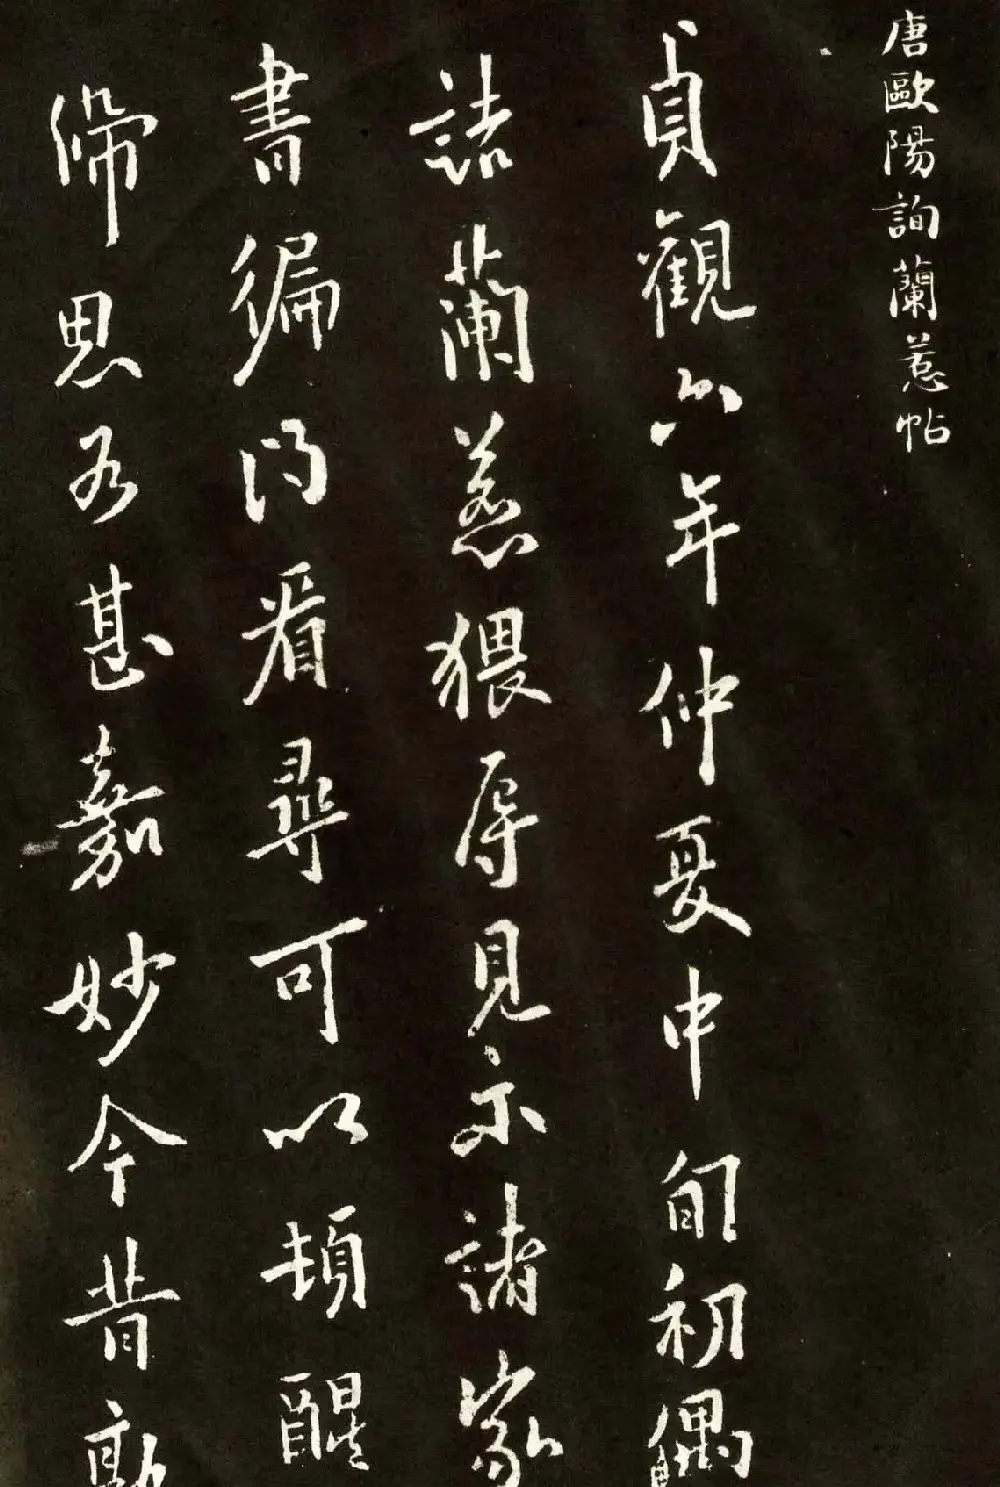 唐歐陽詢蘭惹帖
貞觀六年仲夏中旬初偶
詣蘭惹猥辱見示諸家
書徧得看尋可以頓醒
歸思為甚嘉妙今昔